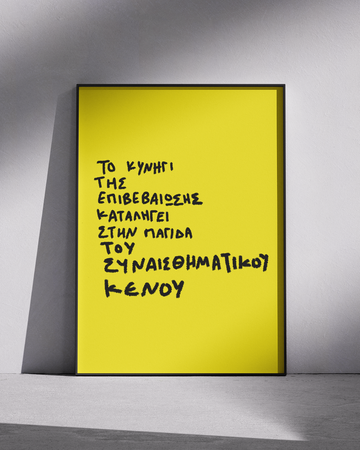 ΤΟ ΚΥΝΗΓΙ
ΤΗΣ
ΕΠΙΒΕΒΑΙΩΣΗΣ
ΚΑΤΑΛΗΓΕΙ
ΣΤΗΝ ΠΑΓΙΔΑ
ΤΟΥ
ΣΥΝΑΙΣΘΗΜΑΤΙΚΟΥ
ΚΕΝΟΥ